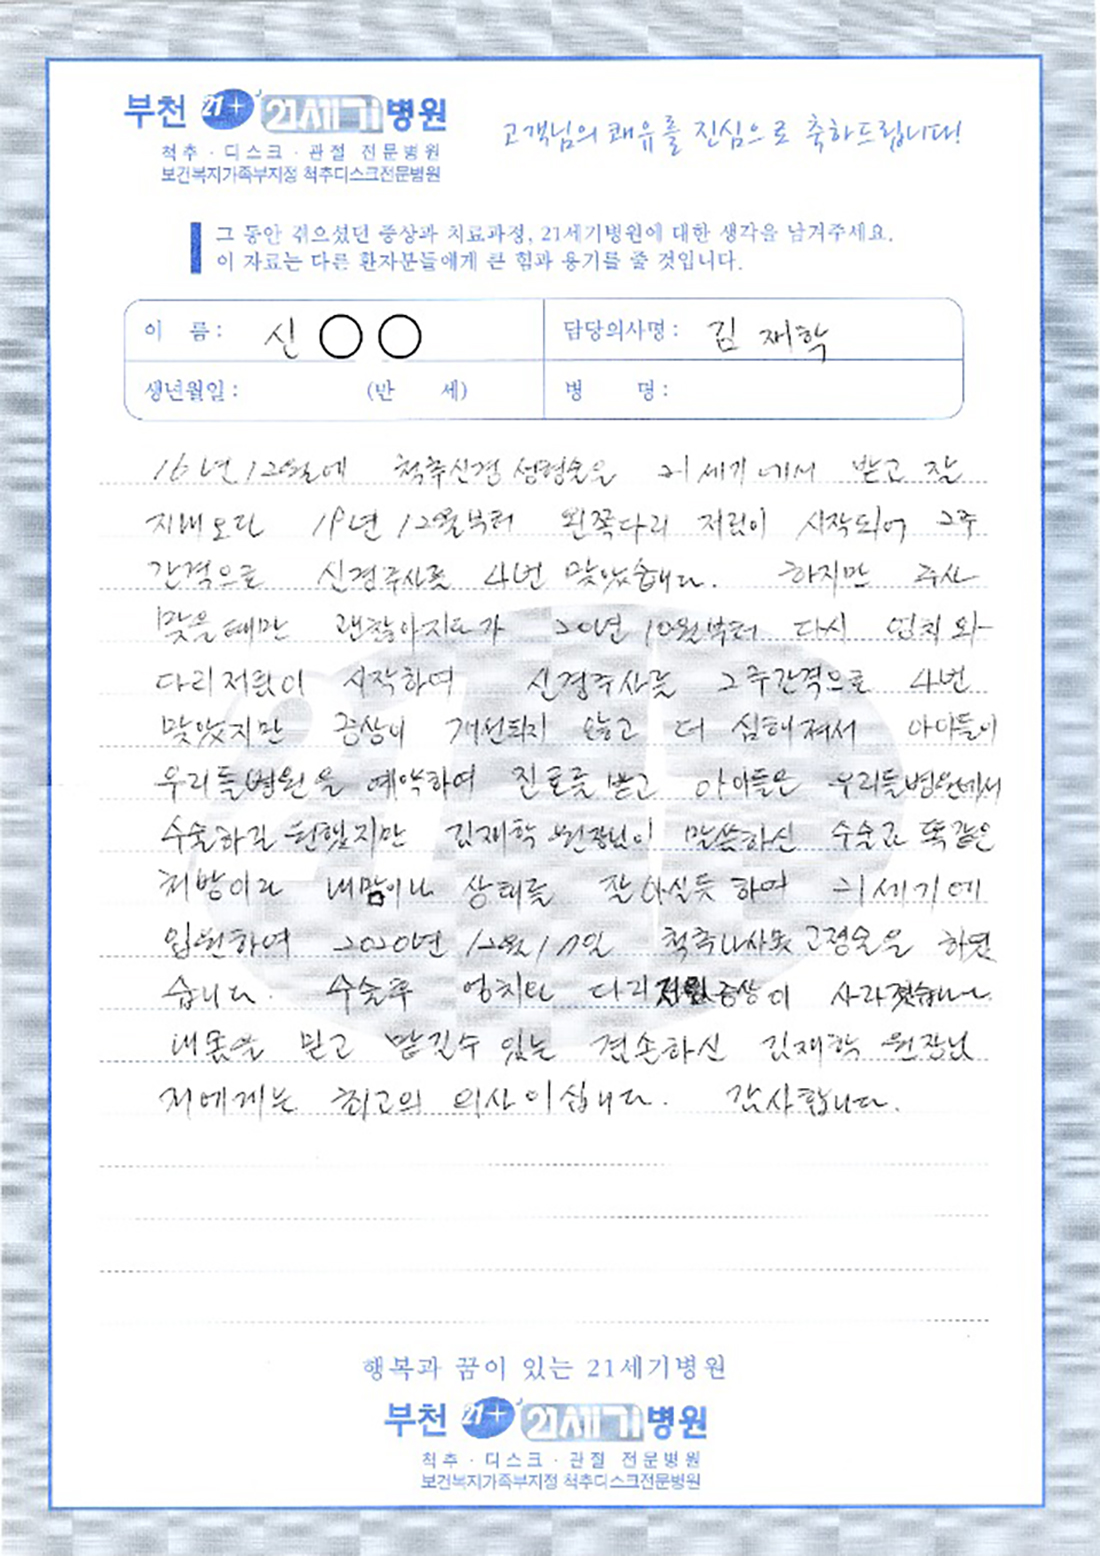 부천 21+ 21세기병원
척추 · 디스크 · 관절 전문병원
보건복지가족부지정 척추디스크전문병원
고객님의 쾌유를 진심으로 축하드립니다!
그 동안 겪으셨던 증상과 치료과정, 21세기병원에 대한 생각을 남겨주세요.
이 자료는 다른 환자분들에게 큰 힘과 용기를 줄 것입니다.
이 름 : 신 ○ ○ 담당의사명 : 김 재학
생년월일 : (만 세) 병 명 :
16년 12월에 척추신경 성형술을 21세기에서 받고 잘
지내오다 19년 12월부터 왼쪽다리 저림이 시작되어 2주
간격으로 신경주사를 4번 맞았습니다. 하지만 주사
맞을때만 괜찮아지다가 20년 10월부터 다시 엉치와
다리저림이 시작하여 신경주사를 2주간격으로 4번
맞았지만 증상이 개선되지 않고 더 심해져서 아이들이
우리들병원을 예약하여 진료를 받고 아이들은 우리들병원에서
수술하길 원했지만 김재학 원장님이 말씀하신 수술과 똑같은
처방이라 내맘이나 상태를 잘 아실듯 하여 21세기에
입원하여 2020년 12월 17일 척추나사못 고정술을 하였
습니다. 수술후 엉치와 다리저림증상이 사라졌습니다.
내몸을 믿고 맡길수 있는 겸손하신 김재학 원장님
저에게는 최고의 의사이십니다. 감사합니다.
행복과 꿈이 있는 21세기병원
부천 21+ 21세기병원
척추 · 디스크 · 관절 전문병원
보건복지가족부지정 척추디스크전문병원